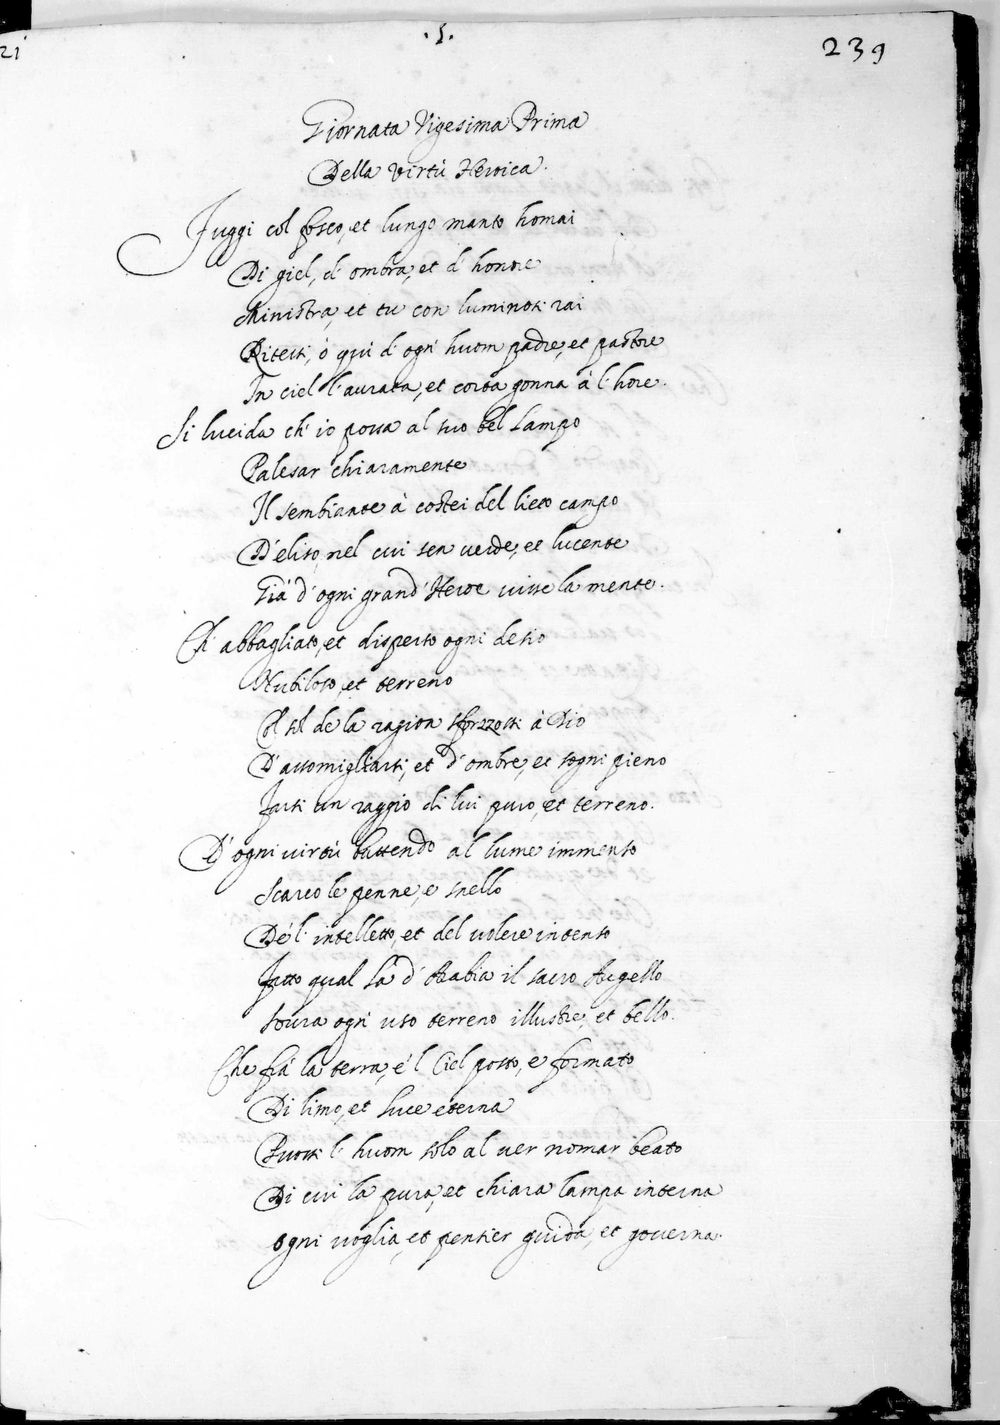 21
.1.
239
Giornata Vigesima Prima
Della Virtù Heroica.
Fuggi col fosco, et lungo manto homai
Di giel, d'ombra, et d'horrore
Ministra, et tu con luminosi rai
Ritessi, ò qui d'ogni huom padre, et pastore
In ciel l'aurata, et corta gonna à l'hore.
Si lucida ch'io possa al suo bel Lampo
Palesar chiaramente
Il sembiante à costei del lieto campo
D'eliso, nel cui sen verde, et lucente
Già d'ogni grand'Heroe visse la mente.
Ch'abbagliato, et disperso ogni desio
Nubiloso, et terreno
Col sol de la ragion sforzossi à Dio
D'assomigliarsi, et d'ombre, et sogni pieno
Farsi un raggio di lui puro, et terreno.
D'ogni virtù battendo al lume immenso
Scarco le penne, e snello
De l'intelletto, et del volere intenso
Fatto qual là d'Arabia il sacro Augello
Soura ogni uso terreno illustre, et bello.
Che frà la terra, e'l Ciel posto, e formato
Di limo, et luce eterna
Puossi l'huom solo al ver nomar beato
Di cui la pura, et chiara lampa interna
Ogni voglia, et pensier guida, et gouerna.